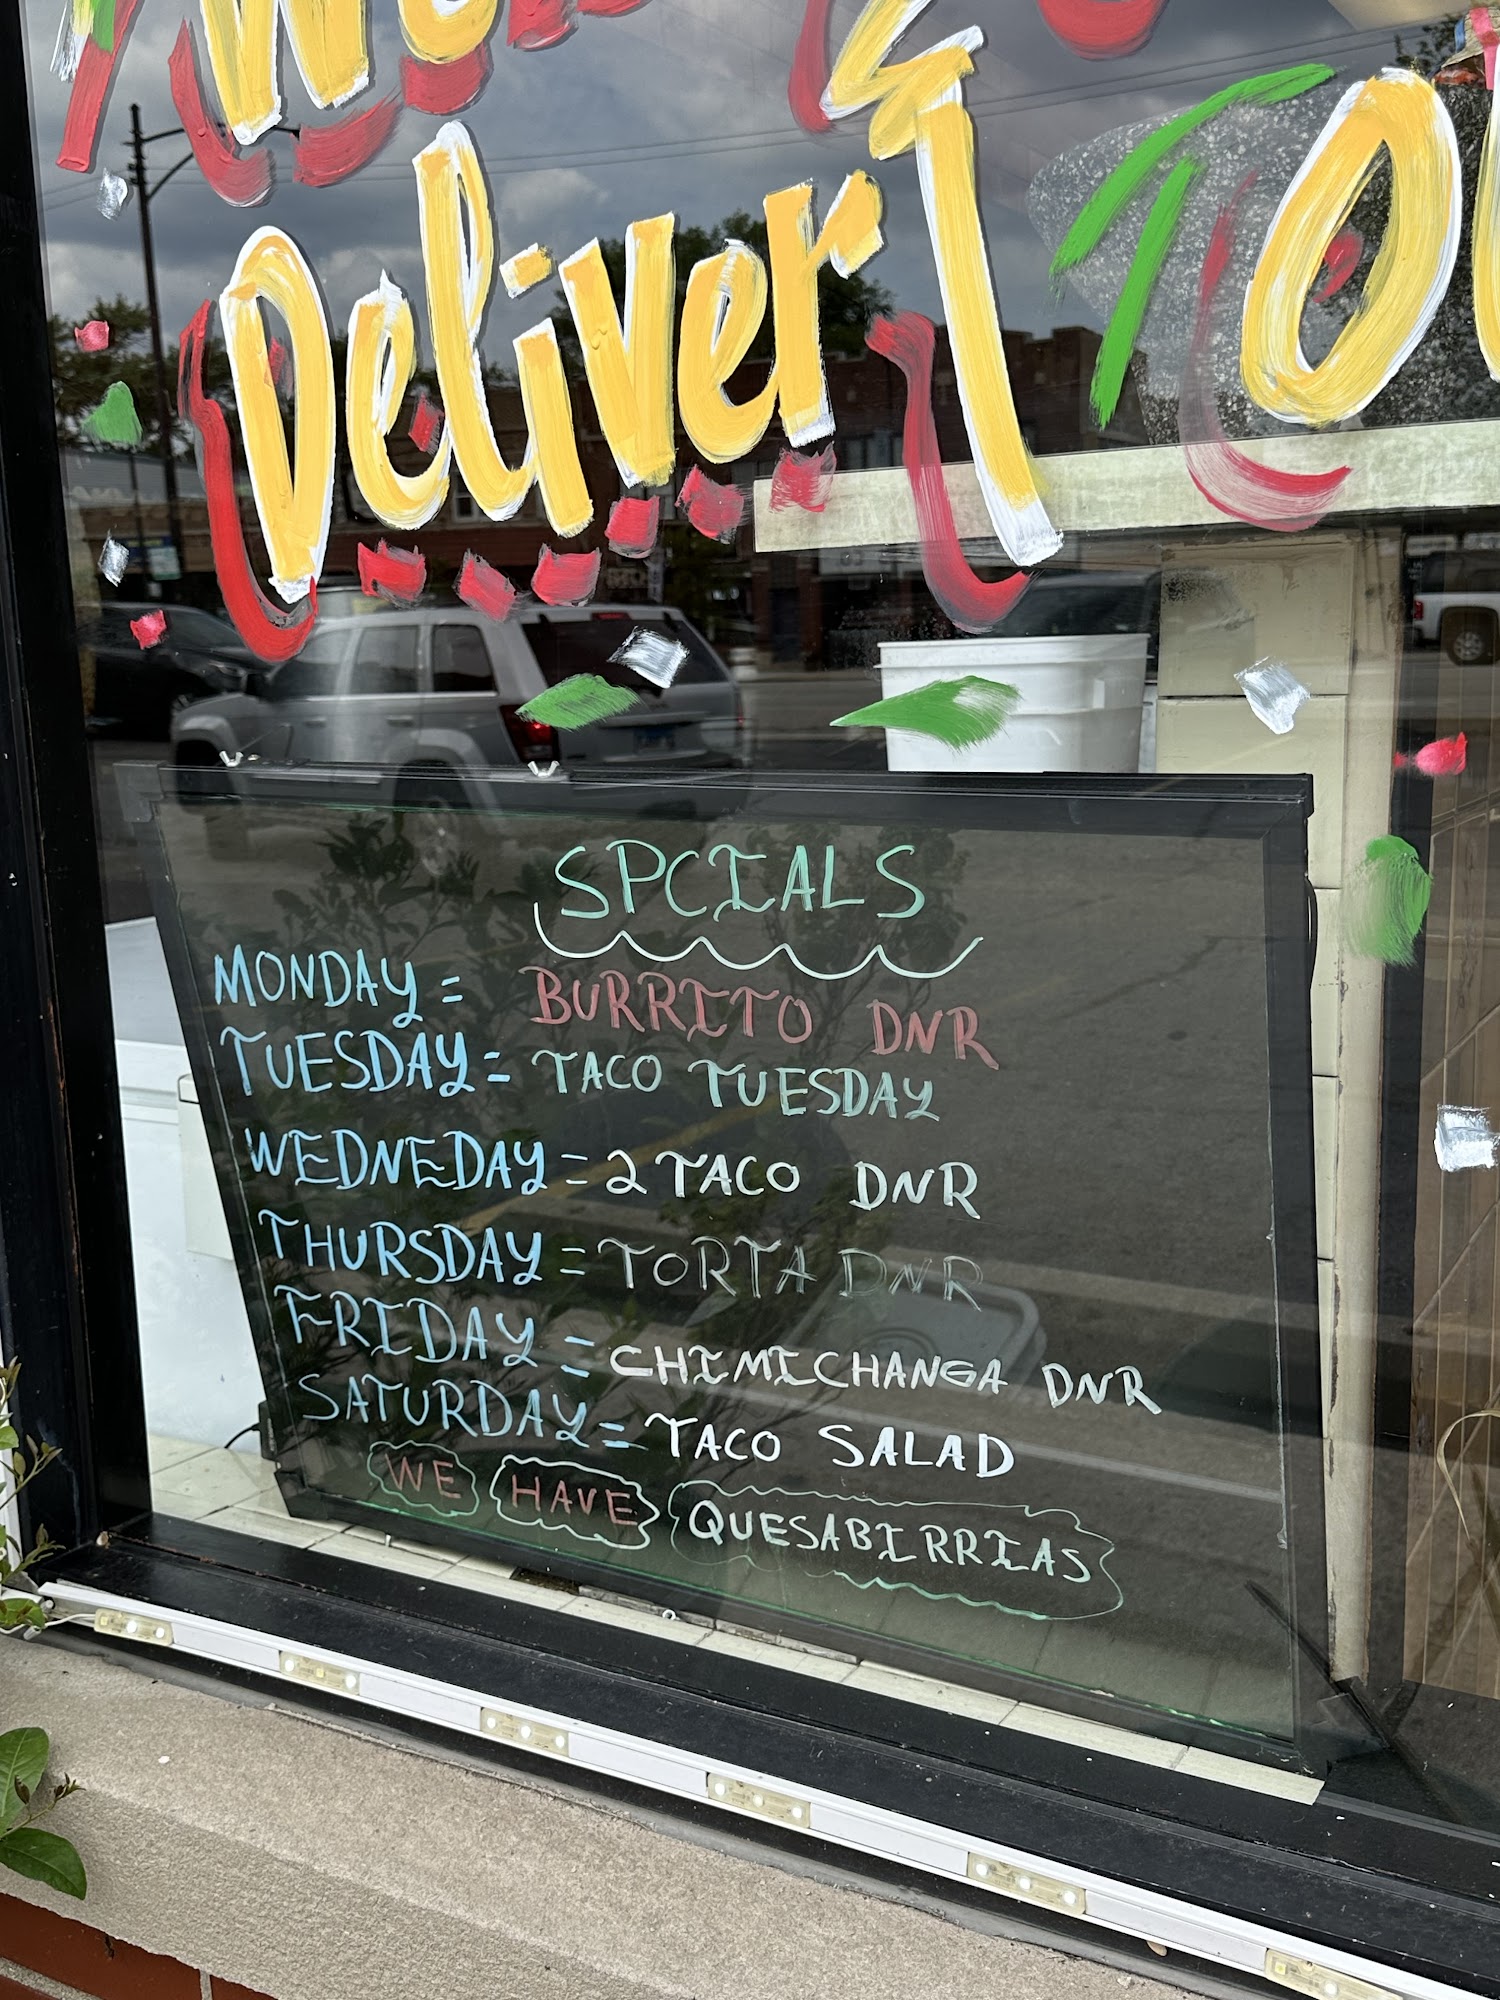 We
Deliver
SPCIALS
MONDAY = BURRITO DNR
TUESDAY = TACO TUESDAY
WEDNEDAY = 2 TACO DNR
THURSDAY = TORTA DNR
FRIDAY = CHIMICHANGA DNR
SATURDAY = TACO SALAD
WE HAVE QUESABIRRIAS